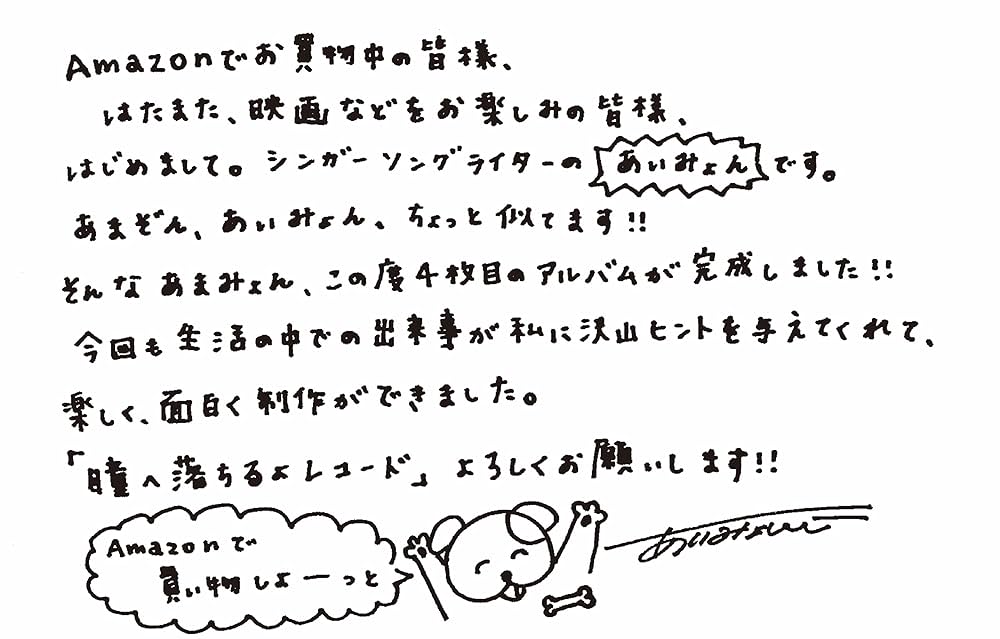 Amazonでお買物中の皆様、
はたまた、映画などをお楽しみの皆様、
はじめまして。シンガーソングライターのあいみょんです。
あまぞん、あいみょん、ちょっと似てます!!
そんなあまみょん、この度4枚目のアルバムが完成しました!!
今回も生活の中での出来事が私に沢山ヒントを与えてくれて、
楽しく、面白く制作ができました。
「瞳へ落ちるよレコード」よろしくお願いします!!
Amazonで
買い物しよーっと
あいみょん